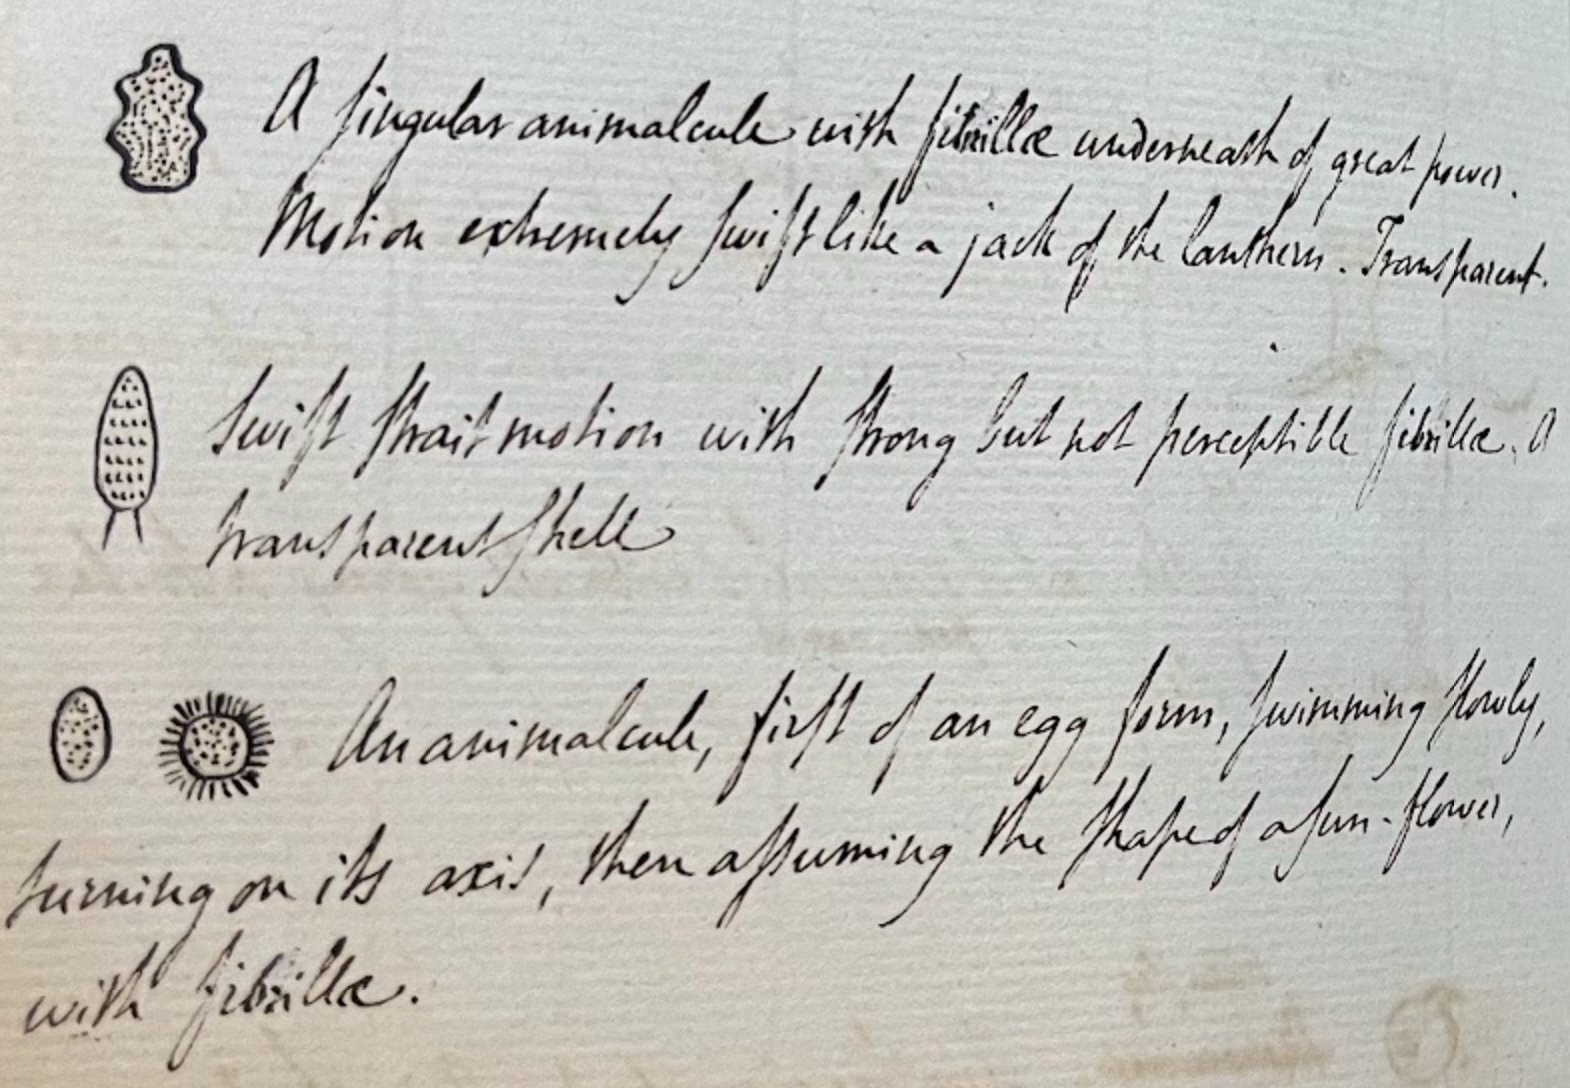 A ſingular animalcule with fibrillæ underneath of great power.
Motion extremely ſwift like a jack of the lanthern. Transparent.
Swift ſtrait motion with ſtrong but not perceptible fibrillæ. A
transparent ſhell
An animalcule, firſt of an egg form, ſwimming ſlowly,
turning on its axis, then aſsuming the ſhape of a ſun-flower,
with fibrillæ.